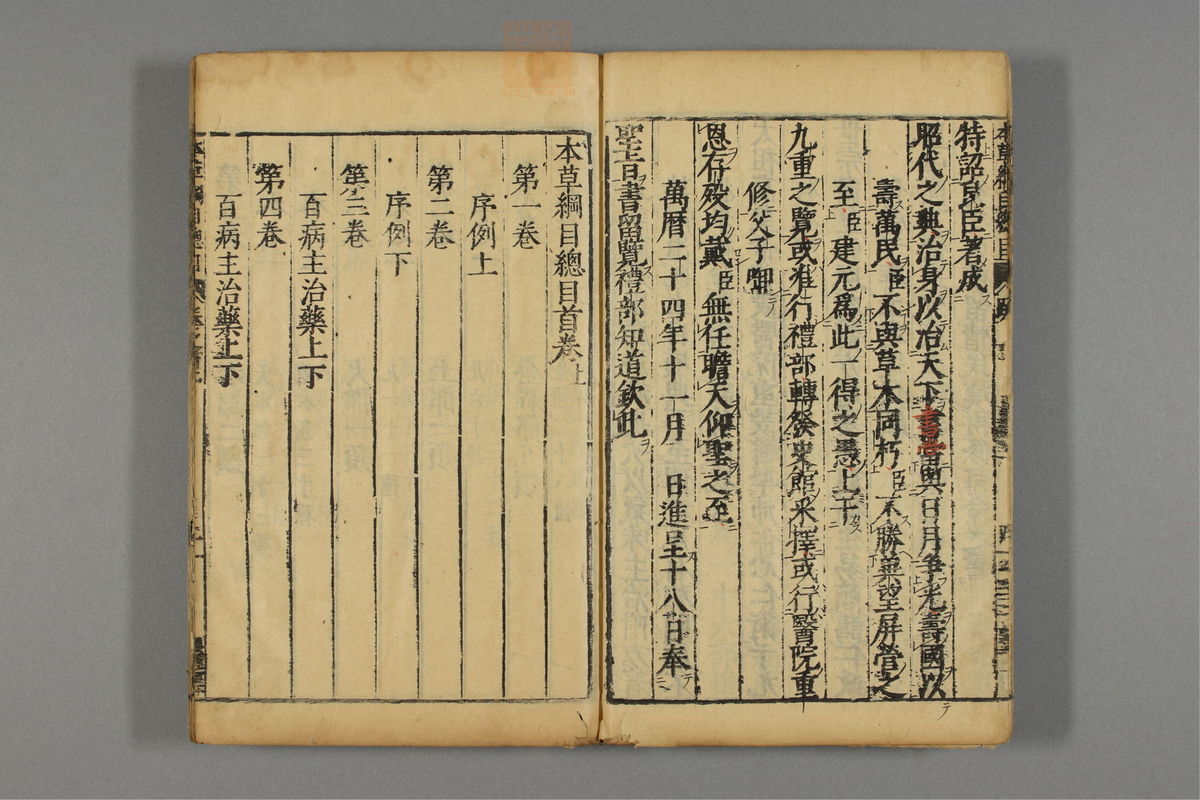 特詔兒臣著成
昭代之典治身以治天下書當與日月爭光壽國以
壽萬民臣不與草木同朽臣不勝冀望屏營之
至臣建元爲此一得之愚上干
九重之覽或准行禮部轉發史館采擇或行醫院重
修父子啣
恩存殁均戴臣無任瞻天仰聖之至
萬暦二十四年十一月 日進呈十八日奉
聖旨書留覽禮部知道欽此
本草綱目總目首卷上
第一卷
序例上
第二卷
序例下
第三卷
百病主治藥上下
第四卷
百病主治藥上下